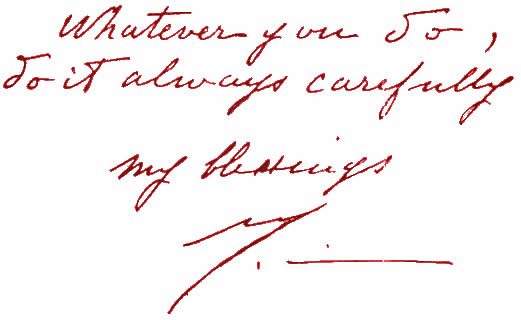 Whatever you do,
do it always carefully
my blessings